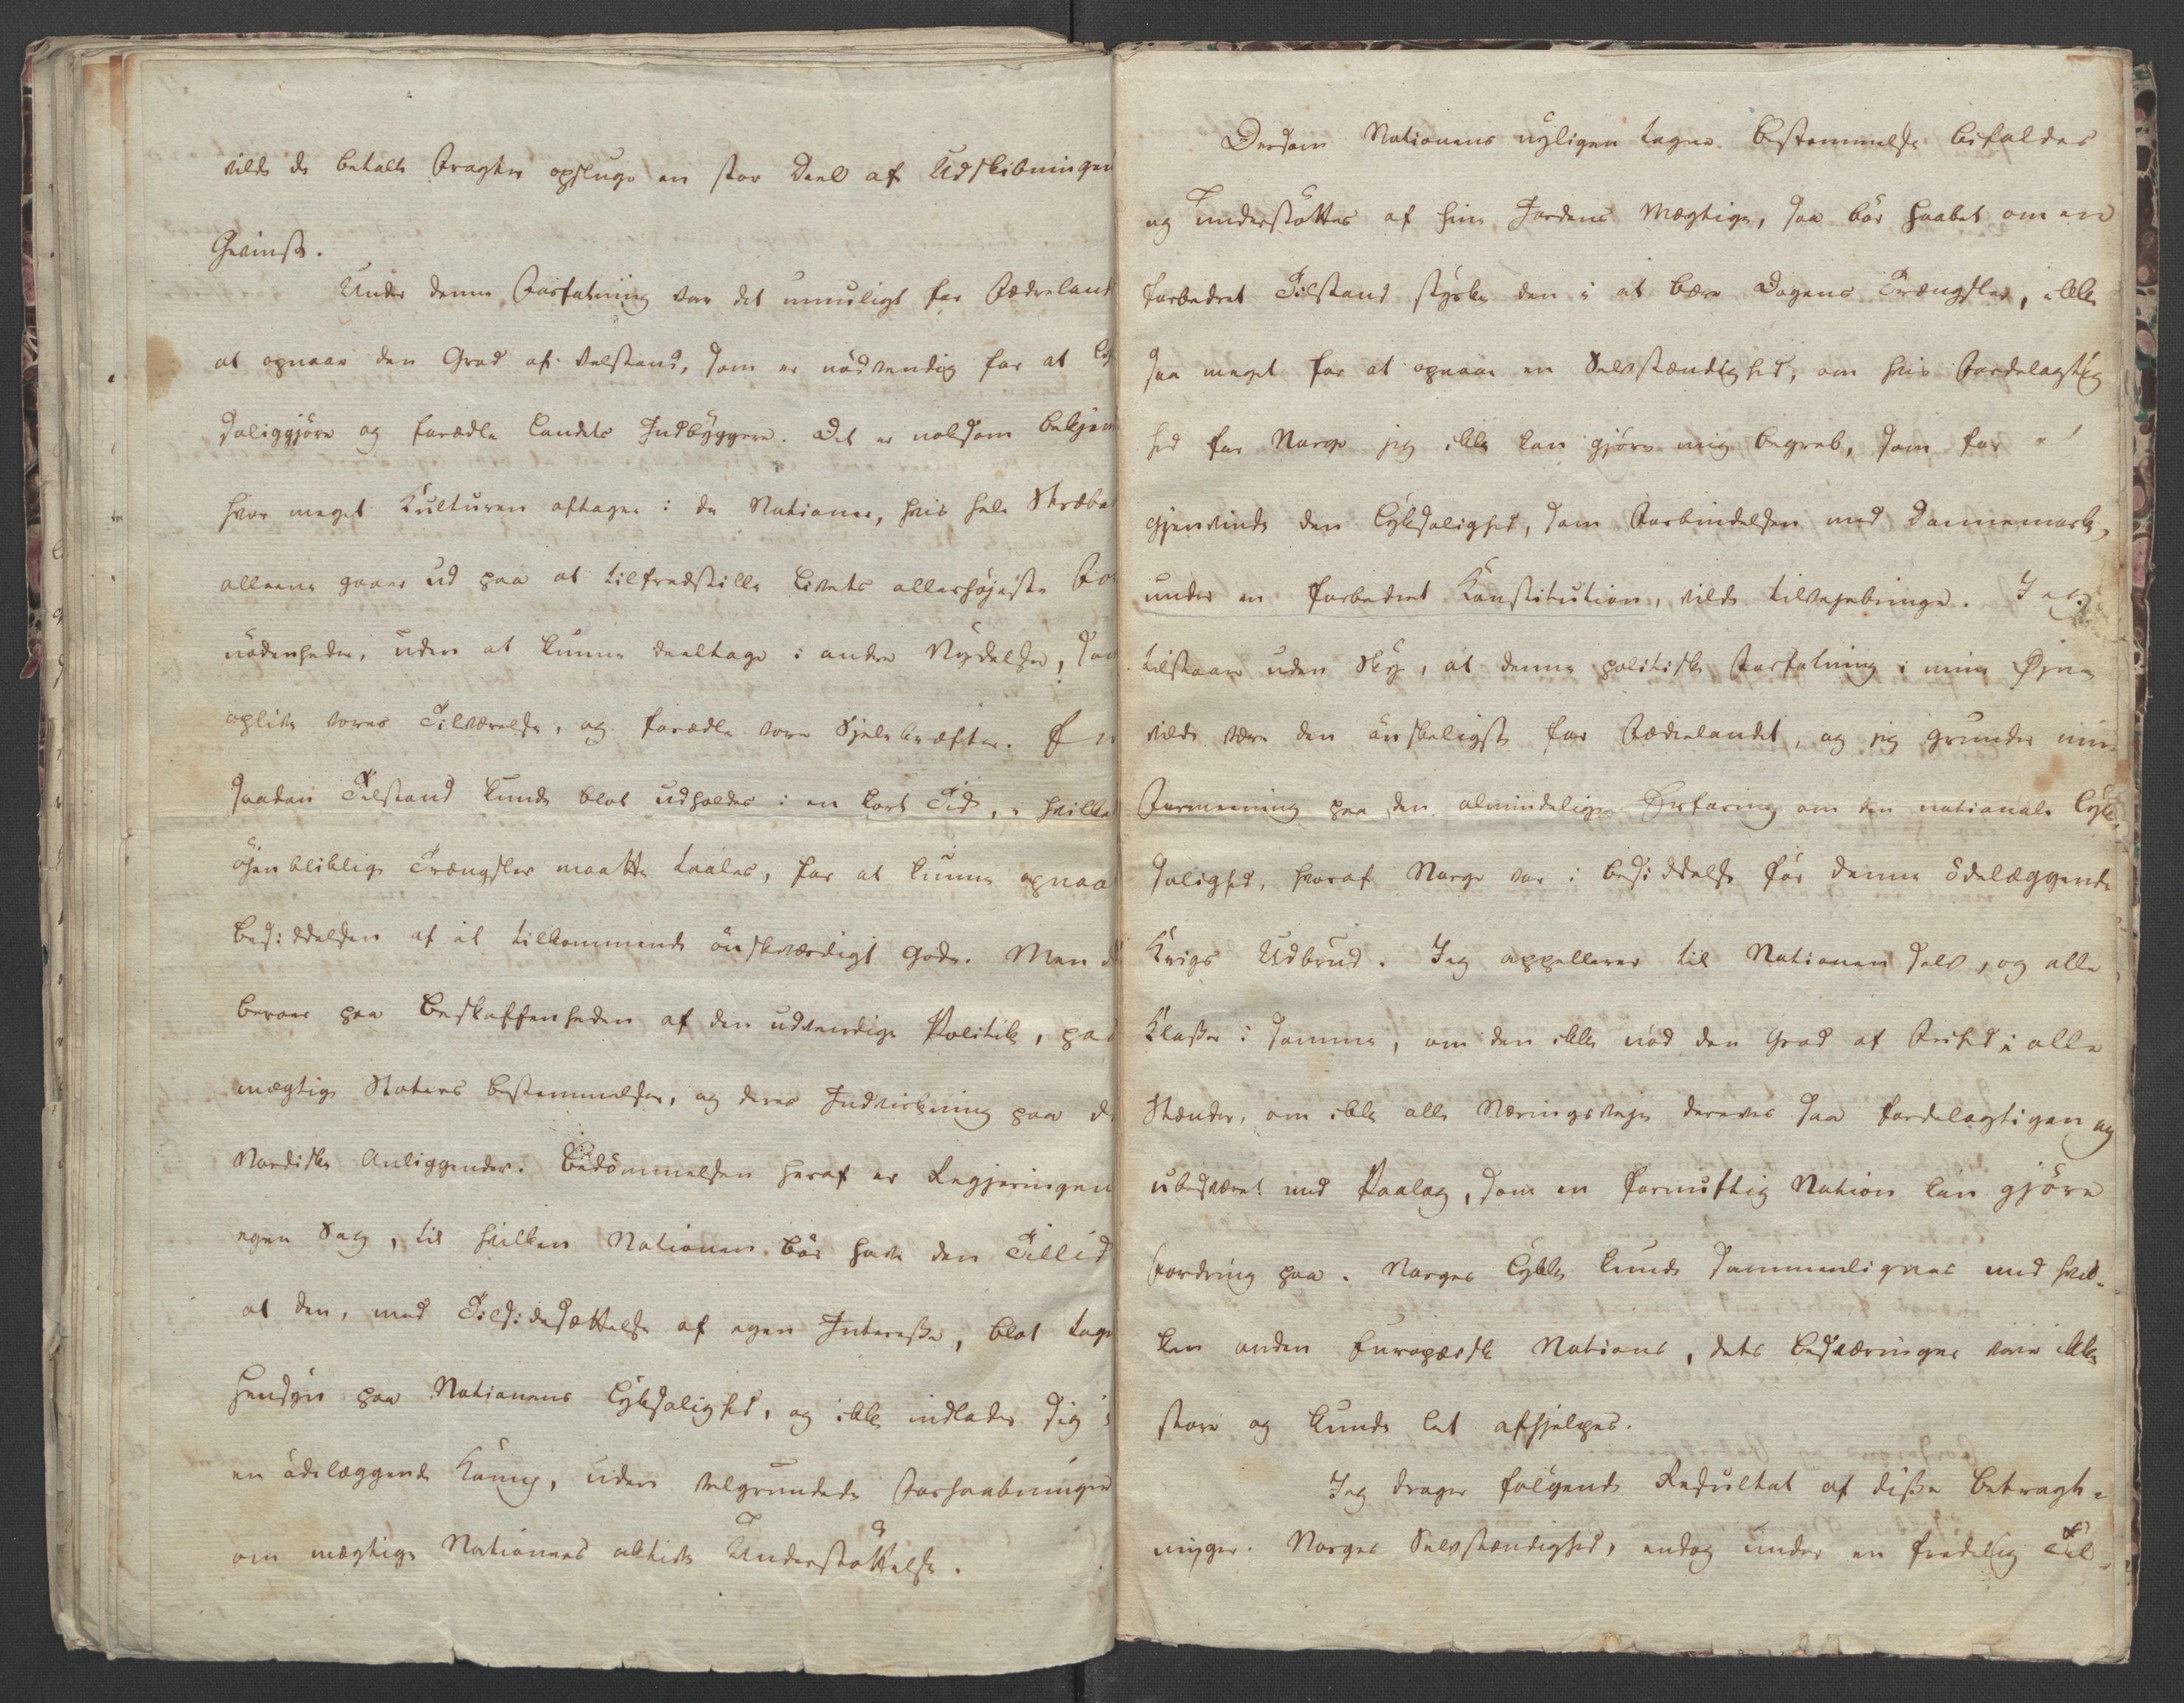 vilde de betalte Fragter opsluge en stor Deel af Udskibningen
Gevinst.
Under denne Forfatning var det umuligt for Fædreland
at opnaae den Grad af Velstand, som er nödvendig for at Lyk
saliggjöre og forædle Landets Indbyggere. Det er noksom bekjen
hvor meget Kulturen aftager i de Nationer, hvis hele Stræben
alleene gaaer ud paa at tilfredsstille Livets allerhöjeste For
nödenheder, uden at kunne deeltage i andre Nydelser, som
oplive vores Tilværelse, og forædle vore Sjelekræfter. En
saadan Tilstand kunde blot udholdes i en kort Tid, i hvilken
öjenbliklige Trængsler maatte taales, for at kunne opnaae
Besiddelsen af et tilkommende önskværdigt Gode. Men d
beroer paa Beskaffenheden af den udvendige Politik, paa
mægtige Staters Bestemmelser, og deres Indvirkning paa de
Nordiske Anliggender. Bedömmelsen heraf er Regjeringen
egen Sag, til hvilken Nationen bör have den Tillid
at den, med Tilsidesættelse af egen Interesse, blot tager
Hensyn paa Nationens Lyksalighed, og ikke indlader sig i
en ödelæggende Kamp, uden velgrundede Forhaabninger
om mægtige Nationers aktive Understöttelse.
Dersom Nationens nyligen tagne Bestemmelse bifaldes
og understöttes af hine Jordens Mægtige, saa bör Haabet om en
forbedret Tilstand styrke den i at bære Dagens Trængsler, ikke
saa meget for at opnaae en Selvstændighed, om hvis Fordelagtig
hed for Norge jeg ikke kan gjöre mig Begreb, som for at
gjenvinde den Lyksalighed, som Forbindelsen med Dannemark,
under en forbedret Konstitution, vilde tilvejebringe. Jeg
tilstaaer uden Sky, at denne politiske Forfatning i mine Öjne
vilde være den önskeligste for Fædrelandet, og jeg grunder min
Formening paa den almindelige Erfaring om den nationale Lyk-
salighed, hvoraf Norge var i Besiddelse för denne ödelæggende
Krigs Udbrud. Jeg appellerer til Nationen selv, og alle
Klasser i samme, om den ikke nöd den Grad af Frihed i alle
Stænder, om ikke alle Næringsveje dereves saa fordelagtigen og
ubesværet med Paalæg, som en fornuftig Nation kan gjöre
Fordring paa. Norges Lykke kunde sammenlignes med hvil-
ken anden Europæisk Nations, dets Besværinger vare ikke
store og kunde let afhjelpes.
Jeg drager fölgende Resultat af disse Betragt-
ninger. Norges Selvstændighed, endog under en fredelig Til-